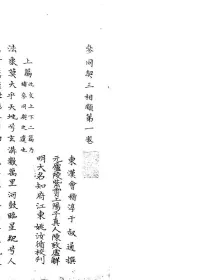 參同契三相類第一卷
東漢會稽淳于叔通撰
元廬陵紫霄上陽子真人陳致虛解
明大名知府江東姚汝循校刊
上篇
此文上下二篇乃
參同契之遺也
法象莫大乎天地兮玄溝數萬里河鼓臨星紀兮人